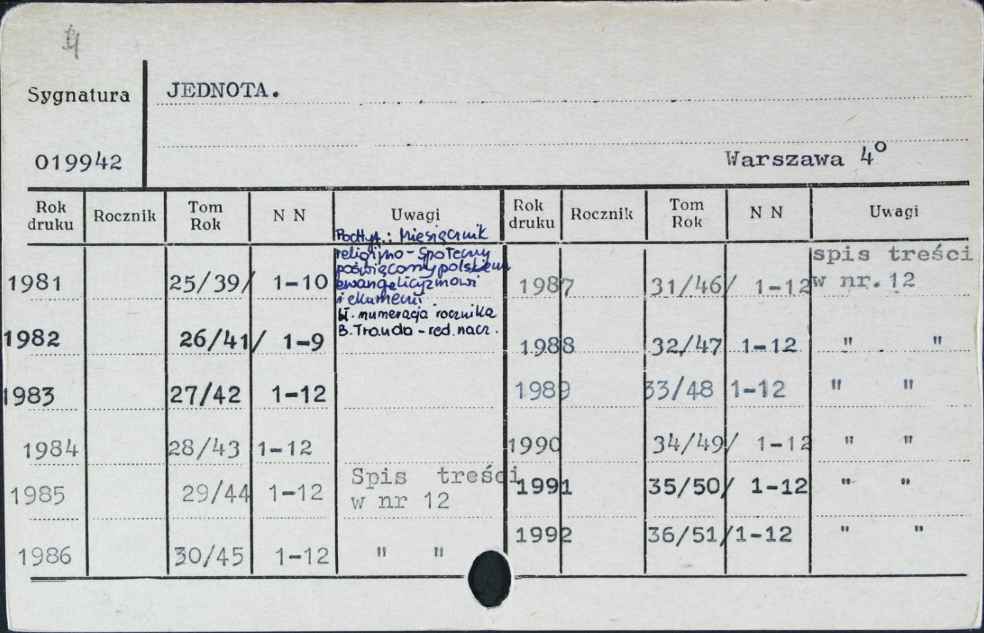 Sygnatura
JEDNOTA.
019942
Warszawa 4°
Rok druku Rocznik Tom Rok N N Uwagi Rok druku Rocznik Tom Rok N N Uwagi
Podtyt.: Miesięcznik
religijno-społeczny
poświęcony polskiemu
ewangelicyzmowi
i ekumenii
numeracja rocznika
B. Tranda - red. nacz.
1981 25/39/ 1-10
1982 26/41/ 1-9
1983 27/42 1-12
1984 28/43 1-12
1985 29/44 1-12 Spis treści
w nr 12
1986 30/45 1-12 " "
spis treści
1987 31/46/ 1-12 w nr.12
1988 32/47 1-12 " "
1989 33/48 1-12 " "
1990 34/49/ 1-12 " "
1991 35/50/ 1-12 " "
1992 36/51/1-12 " "